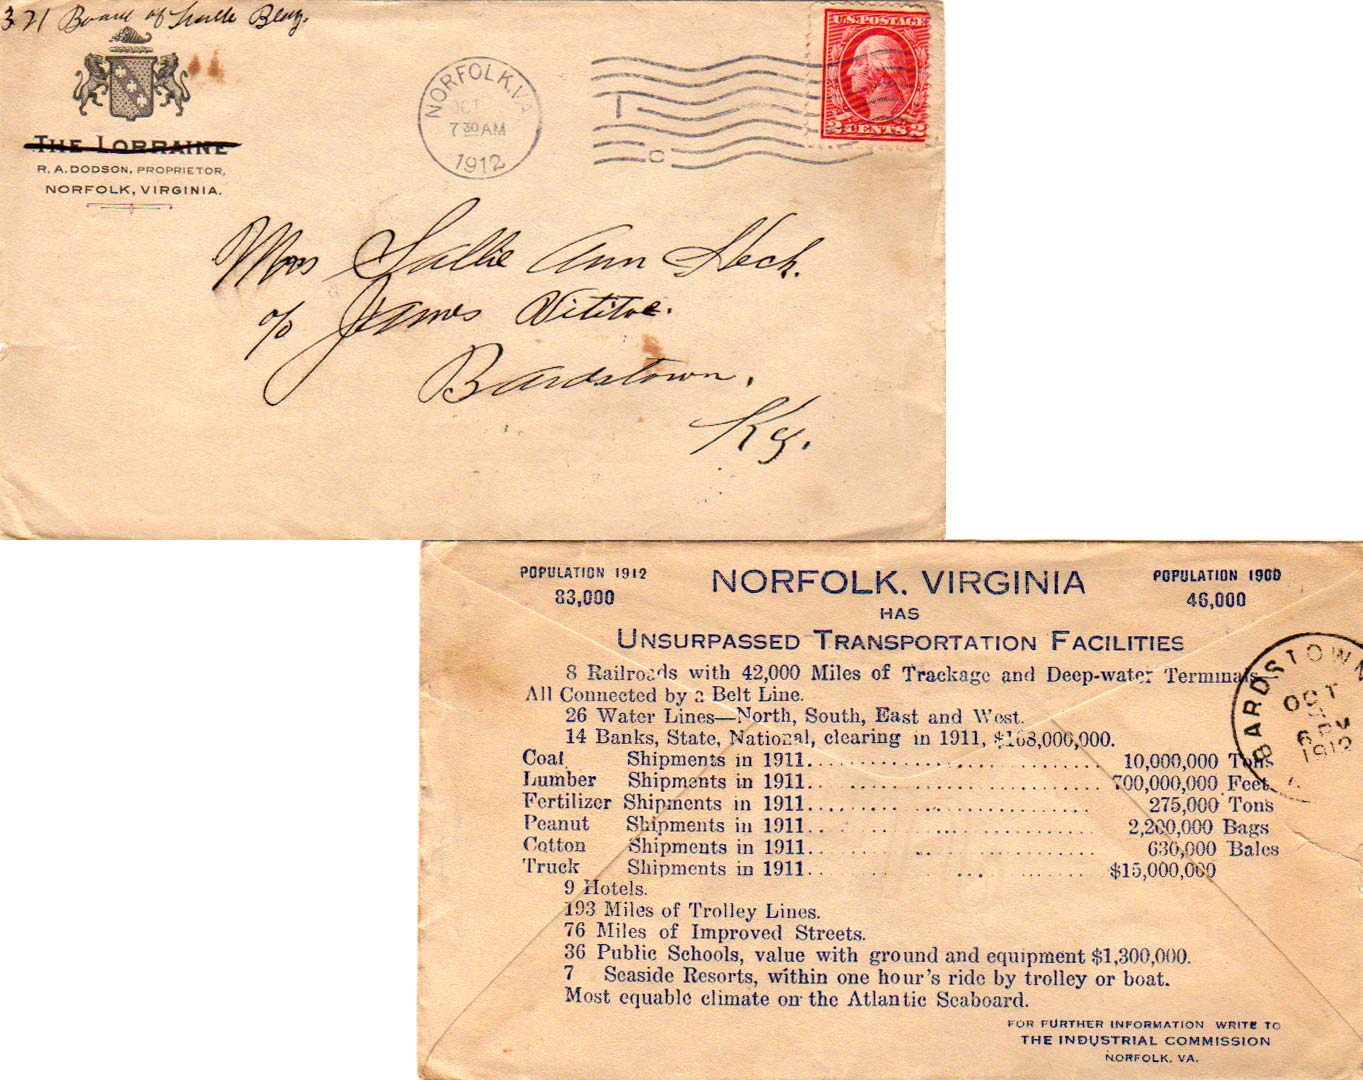 321 Board of Trade Bldg.
THE LORRAINE
R. A. DODSON, PROPRIETOR,
NORFOLK, VIRGINIA.
NORFOLK, VA
OCT
7 30 AM
1912
U.S. POSTAGE
2 CENTS 2
Mrs Sallie Ann Heck.
c/o James Vititoe.
Bardstown,
Ky.
POPULATION 1912
83,000
NORFOLK, VIRGINIA
POPULATION 1900
46,000
HAS
UNSURPASSED TRANSPORTATION FACILITIES
8 Railroads with 42,000 Miles of Trackage and Deep-water Terminals
All Connected by a Belt Line.
26 Water Lines—North, South, East and West.
14 Banks, State, National, clearing in 1911, $168,000,000.
Coal Shipments in 1911 10,000,000 Tons
Lumber Shipments in 1911 700,000,000 Feet
Fertilizer Shipments in 1911 275,000 Tons
Peanut Shipments in 1911 2,200,000 Bags
Cotton Shipments in 1911 630,000 Bales
Truck Shipments in 1911 $15,000,000
9 Hotels.
193 Miles of Trolley Lines.
76 Miles of Improved Streets.
36 Public Schools, value with ground and equipment $1,300,000.
7 Seaside Resorts, within one hour's ride by trolley or boat.
Most equable climate on the Atlantic Seaboard.
FOR FURTHER INFORMATION WRITE TO
THE INDUSTRIAL COMMISSION
NORFOLK, VA.
BARDSTOWN
OCT
1912